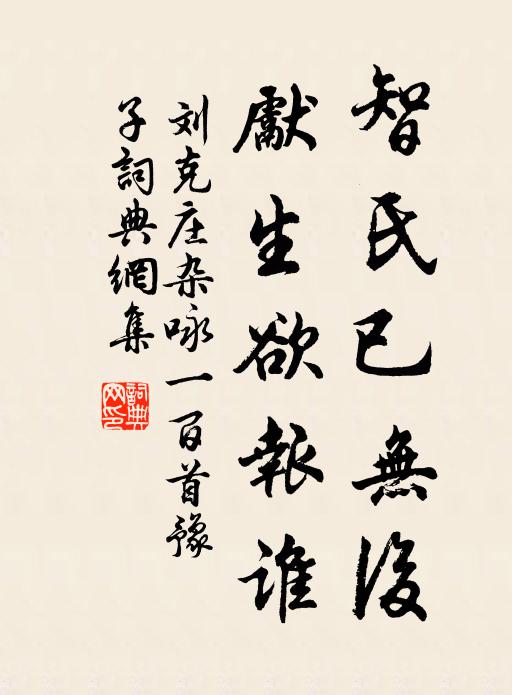 智氏已無後
獻生欲報誰
刘克庄杂咏一百首豫
子詞典網集
詞典
网印